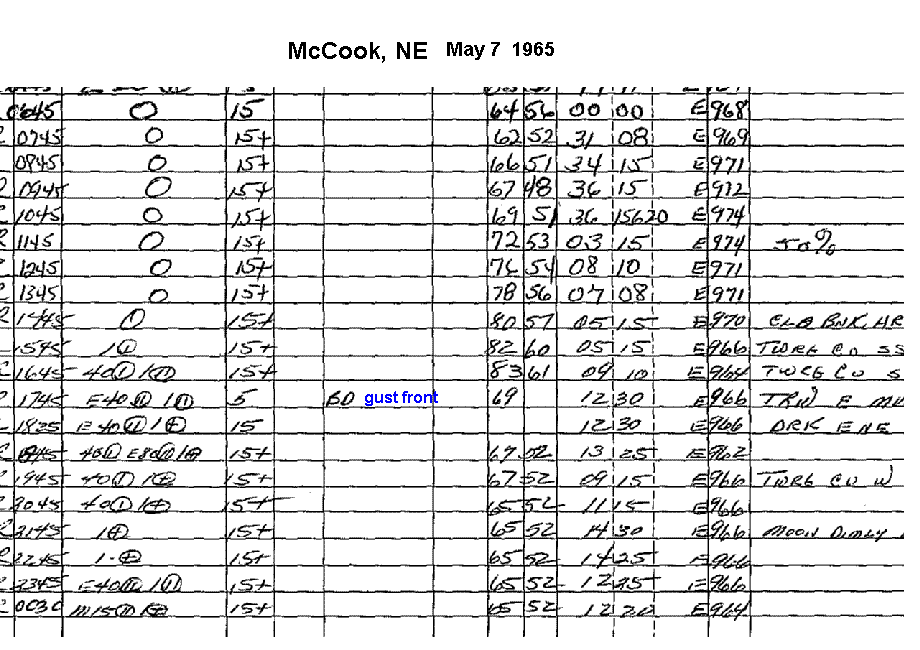 McCook, NE May 7 1965
0645 O 15 64 56 00 00 E 968
0745 O 15+ 62 52 31 08 E 969
0845 O 15+ 66 51 34 15 E 971
0945 O 15+ 67 48 36 15 E 972
1045 O 15+ 69 51 36 15G20 E 974
1145 O 15+ 72 53 03 15 E 974 50%
1245 O 15+ 76 54 08 10 E 971
1345 O 15+ 78 56 07 08 E 971
1445 15+ 80 57 05 15 E 970 CLD BNK
1545 15+ 82 60 05 15 E 966 TWRG CU SS
1645 15+ 83 61 09 10 E 964 TWRG CU S
1745 5 BD gust front 69 12 30 E 966 TRW E
1825 15 12 30 E 966 DRK ENE
15+ 67 52 13 25 E 962
1945 15+ 67 52 09 15 E 966 TWRG CU W
2045 15+ 65 52 11 15 E 966
2145 15+ 65 52 14 30 E 966 MOON DIMLY
2245 15+ 65 52 14 25 E 966
2345 15+ 65 52 12 25 E 966
0030 15+ 65 52 12 20 E 964